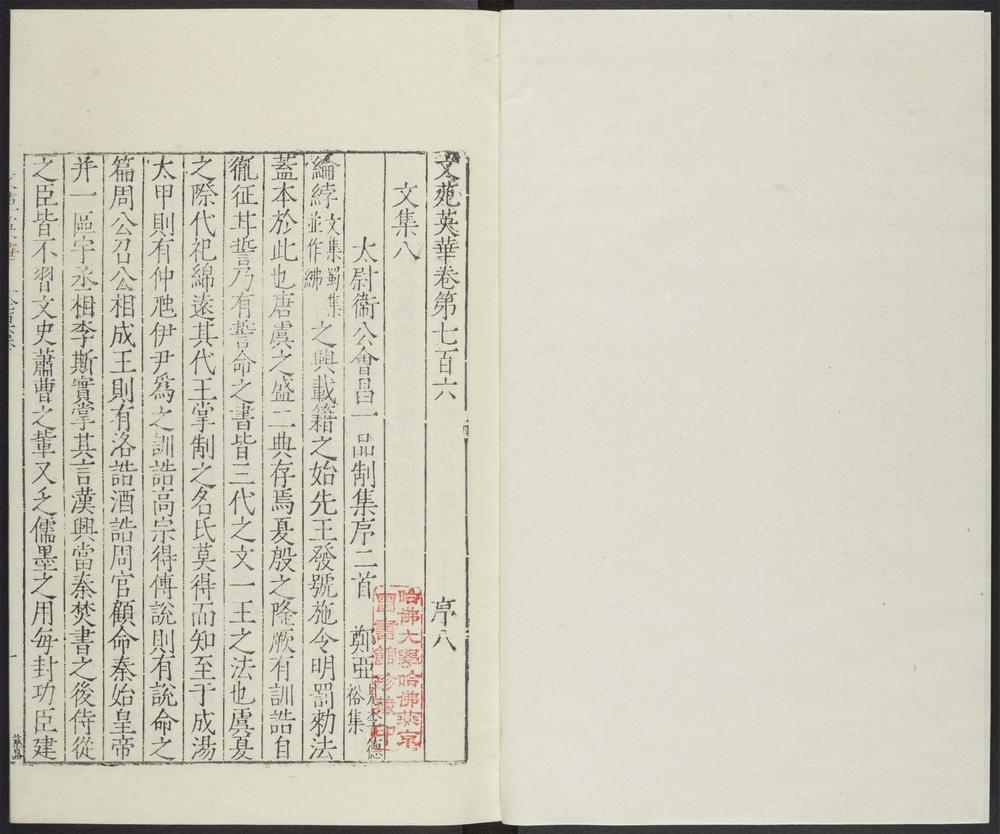 文苑英華卷第七百六 序八
文集八
太尉衞公會昌一品制集序二首 鄭亞 見李德裕集
綸綍 文集蜀集並作綍 之興載籍之始先王發號施令明罰勑法
蓋本於此也唐虞之盛二典存焉夏殷之隆厥有訓誥自
胤征甘誓乃有誓命之書皆三代之文一王之法也虞夏
之際代祀綿遠其代王掌制之名氏莫得而知至于成湯
太甲則有仲虺伊尹爲之訓誥高宗得傅說則有說命之
篇周公召公相成王則有洛誥酒誥周官顧命秦始皇帝
并一區宇丞相李斯實掌其言漢興當秦焚書之後侍從
之臣皆不習文史蕭曹之輩又乏儒墨之用每封功臣建
一
哈佛大學哈佛燕京
圖書館珍藏印